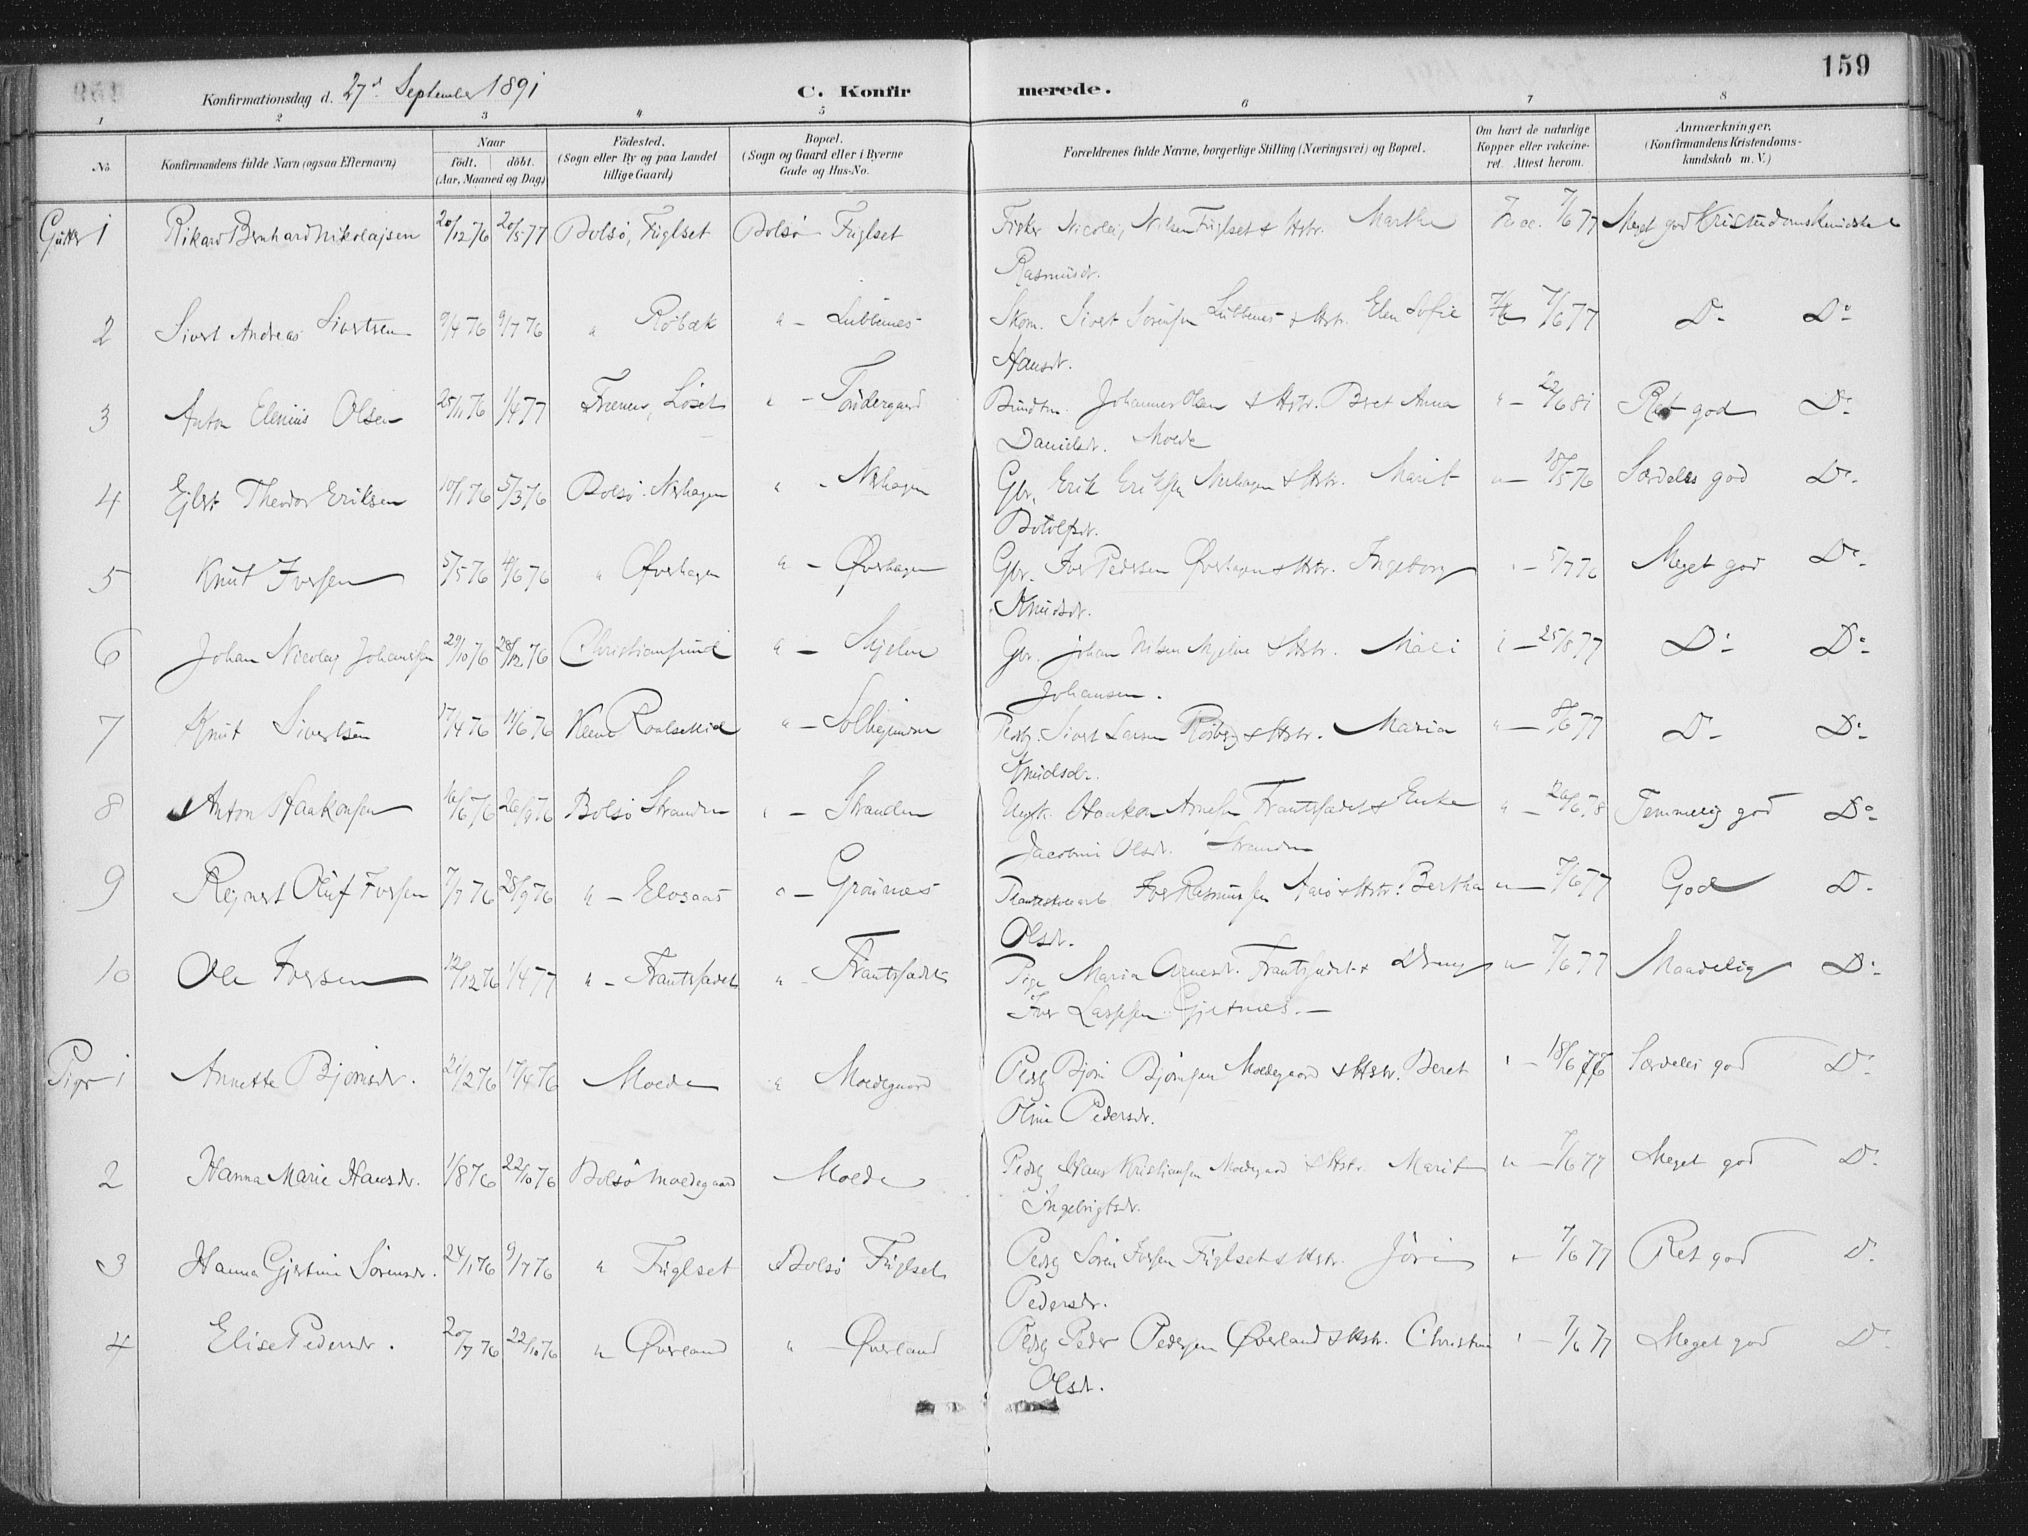 159
Konfirmationsdag d. 27de September 1891 C. Konfirmerede.
1 2 3 4 5 6 7 8
No. Konfirmandens fulde Navn (ogsaa Efternavn) Naar födt. döbt. (Aar, Maaned og Dag) Födested. (Sogn eller By og paa Landet tillige Gaard) Bopæl. (Sogn og Gaard eller i Byerne Gade og Hus-No. Forældrenes fulde Navne, borgerlige Stilling (Næringsvei) og Bopæl. Om havt de naturlige Kopper eller vakcineret. Attest herom. Anmærkninger. (Konfirmandens Kristendomskundskab m. V.)
Gutter 1 Rikard Bernhard Nikolajsen 20/12 76 20/5 77 Bolsø, Fuglset Bolsø Fuglset Fisker Nicolai Nilsen Fuglset & Hstr. Marthe 7/6 77 Meget god Kristendomskundskab
Rasmusdr.
2 Sivert Andreas Sivertsen 9/4 76 9/7 76 " Röbæk " - Lubbenes Skom. Sivert Sörensen Lubbenes & Hstr. Elen Sofie 7/6 77 Do Do
Hansdr.
3 Anton Elenius Olsen 25/11 76 1/4 77 Frænen, Löset " - Töndergaard Johannes Olsen & Hstr. Beret Anna " - 22/6 81 Ret god Do
Danielsdr. Molde
4 Ejlert Theodor Eriksen 10/1 76 5/3 76 Bolsø Nerhagen " - Nerhagen Gbr. Erik Eriksen Nerhagen & Hstr. Marit " - 18/5 76 Særdeles god Do
Botolfsdr.
5 Knut Iversen 5/5 76 4/6 76 " Øverhagen " - Øverhagen Gbr. Iver Pedersen Øverhagen & Hstr. Ingeborg " - 5/7 76 Meget god Do
Knudsdr.
6 Johan Nicolay Johansen 29/10 76 28/12 76 Christiansund " - Mjelve Gbr. Johan Nilsen Mjelve & Hstr. Mali " - 25/8 77 Do Do
Johansen.
7 Knut Sivertsen 17/4 76 11/6 76 Kleve " - Pedsg. Sivert Larsen Röberg & Hstr. Maria " - 8/6 77 Do Do
Knudsdr.
8 Anton Haakonsen 16/6 76 Bolsø Stranden " - Stranden Ungk. Haakon Arnesen Frantsfædet & Enke " - 26/6 78 Temmelig god Do
Jacobine Olsdr. Stranden
9 Rejnert Oluf Iversen 7/7 76 28/9 76 " - Elvsaas " - Grönnes Iver Rasmussen Aarö & Hstr. Bertha " - 7/6 77 God Do
Olsdr.
10 Ole Iversen 12/12 76 1/4 77 " - Frantsfædet " - Frantsfædet Pige Maria Arnesdr. Frantsfædet & Dreng " 7/6 77 Maadelig Do
Iver Gjetnes. -
Piger 1 Annette Bjørnsdr. 21/2 76 17/4 76 Molde " Moldegaard Pedsg Bjørn Bjørnsen Moldegaard & Hstr. Beret " - 18/6 76 Særdeles god Do
Oline Pedersdr.
2 Hanna Marie Hansdr. 1/8 76 22/10 76 Bolsø Moldegaard Molde Pedsg Hans Kristiansen Moldegaard & Hstr. Marit " - 7/6 77 Meget god Do
Ingebrigtsdr.
3 Hanna Gjertine Sörensdr. 24/1 76 9/7 76 " Fuglset Bolsø Fuglset Pedsg Sören Iversen Fuglset & Hstr. Jöri " 7/6 77 Ret god Do
Pedersdr.
4 Elise Pedersdr. 20/7 76 22/10 76 " Øverland " Øverland Pedsg Peder Pedersen Øverland & Hstr. Christine " - 7/6 77 Meget god Do
Olsdr.